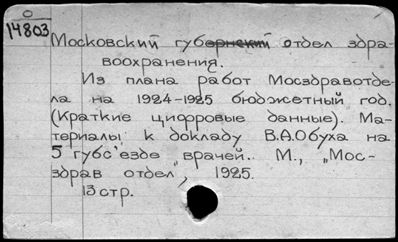 0
14803
Московский губернский отдел здра-
воохранения.
Из плана работ Мосздравотде-
ла на 1924-1925 бюджетный год.
(Краткие цифровые данные). Ма-
териалы к докладу В.А.Обуха на
5 губс'езде врачей. М., „Мос-
здрав отдел", 1925.
13 стр.